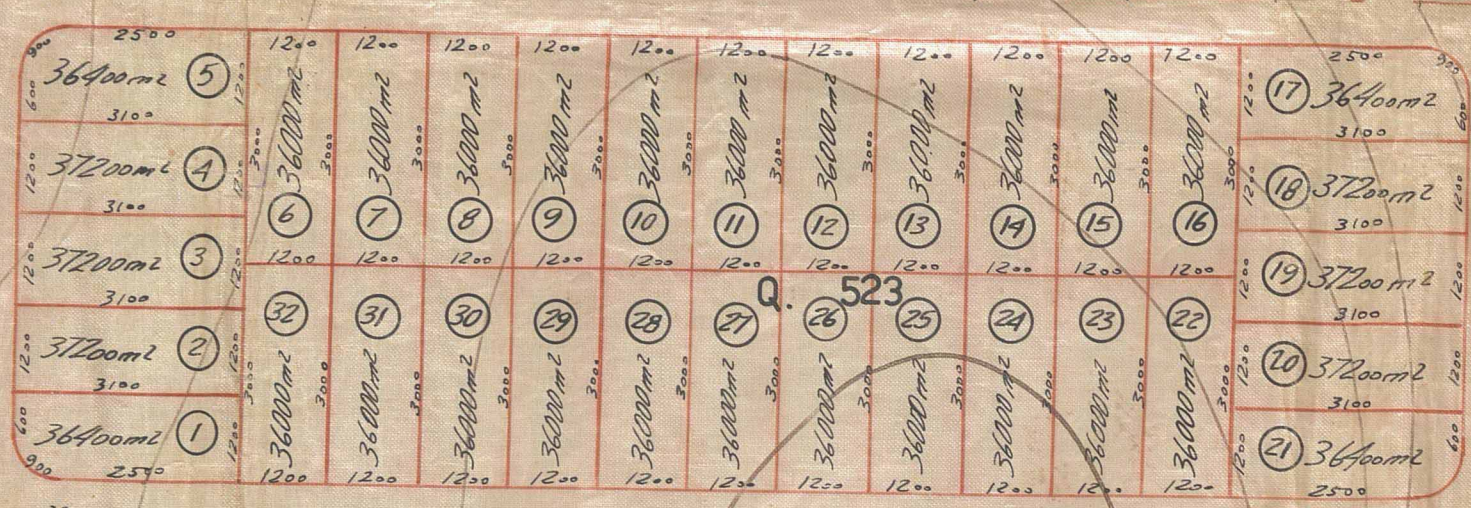 2500 1200 1200 1200 1200 1200 1200 1200 1200 1200 1200 1200 2500
900 600 36400m2 5 1200
3100
1200 37200m2 4 1200
3100
1200 37200m2 3 1200
3100
1200 37200m2 2 1200
3100
600 36400m2 1 1200
900 2500
3000 36000m2 3000 36000m2 3000 36000m2 3000 36000m2 3000 36000m2 3000 36000m2 3000 36000m2 3000 36000m2 3000 36000m2 3000 36000m2 3000 36000m2 3000
6 7 8 9 10 11 12 13 14 15 16
1200 1200 1200 1200 1200 1200 1200 1200 1200 1200 1200
Q. 523
32 31 30 29 28 27 26 25 24 23 22
3000 36000m2 3000 36000m2 3000 36000m2 3000 36000m2 3000 36000m2 3000 36000m2 3000 36000m2 3000 36000m2 3000 36000m2 3000 36000m2 3000 36000m2 3000
1200 1200 1200 1200 1200 1200 1200 1200 1200 1200 1200
1200 17 36400m2 600 900
3100
1200 18 37200m2 1200
3100
1200 19 37200m2 1200
3100
1200 20 37200m2 1200
3100
1200 21 36400m2 600
2500